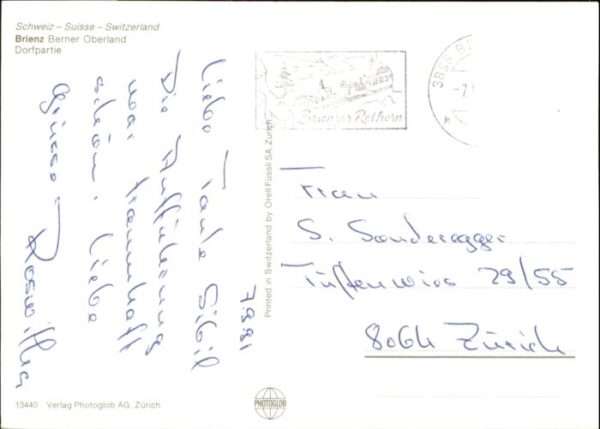 Schweiz – Suisse – Switzerland
Brienz Berner Oberland
Dorfpartie
Liebe Tante Sibil
Die Aufführung
war traumhaft
schön. Liebe
Grüsse:
Roswitha
7.8.81
Brienzer Rothorn
3855 B
Frau
S. Sonderegger
Tüffenwies 29/55
8064 Zürich
Printed in Switzerland by Orell Füssli SA, Zürich
13440 Verlag Photoglob AG, Zürich
PHOTOGLOB